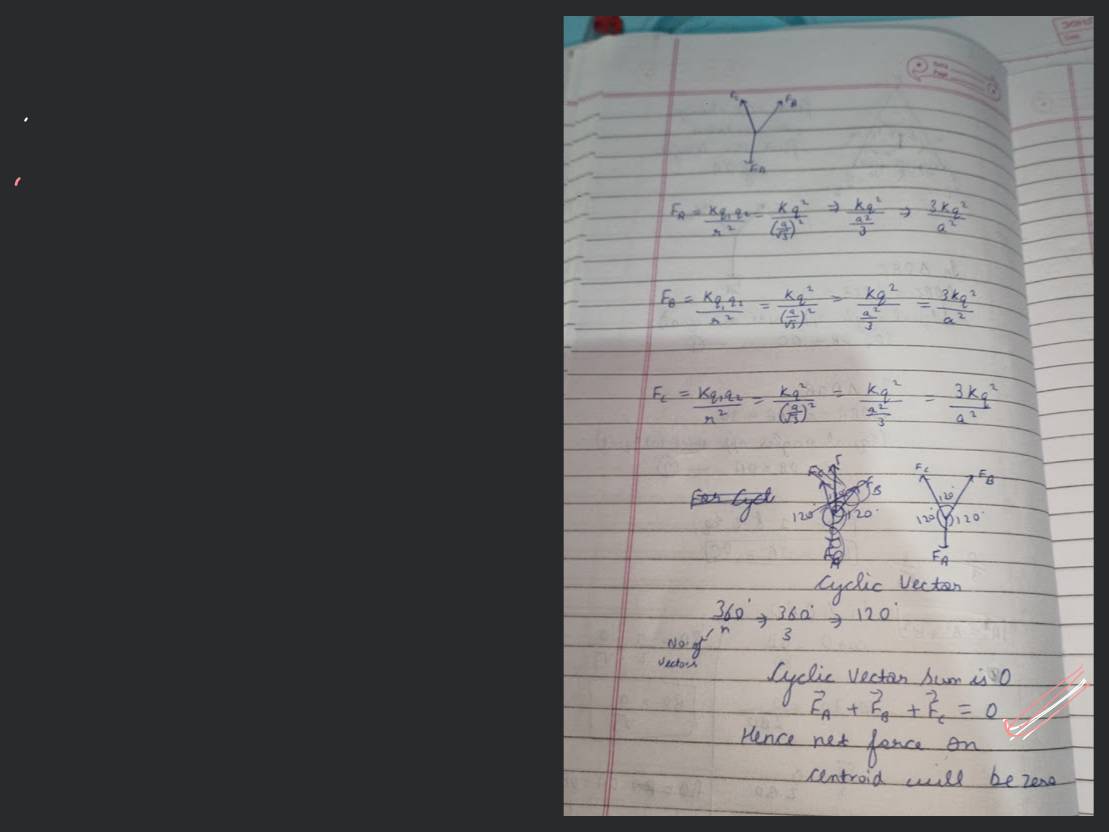 F_C F_B
F_A
F_A = Kq₁q₂/r² = Kq²/(a/√3)² ⇒ Kq²/(a²/3) ⇒ 3Kq²/a²
F_B = Kq₁q₂/r² = Kq²/(a/√3)² = Kq²/(a²/3) = 3Kq²/a²
F_C = Kq₁q₂/r² = Kq²/(a/√3)² = Kq²/(a²/3) = 3Kq²/a²
F_C F_B
120°
120° 120° 120° 120°
F_A F_A
Cyclic Vector
360°/n → 360°/3 → 120°
No. of
vectors
Cyclic Vector sum is 0
F⃗_A + F⃗_B + F⃗_C = 0
Hence net force on
centroid will be zero